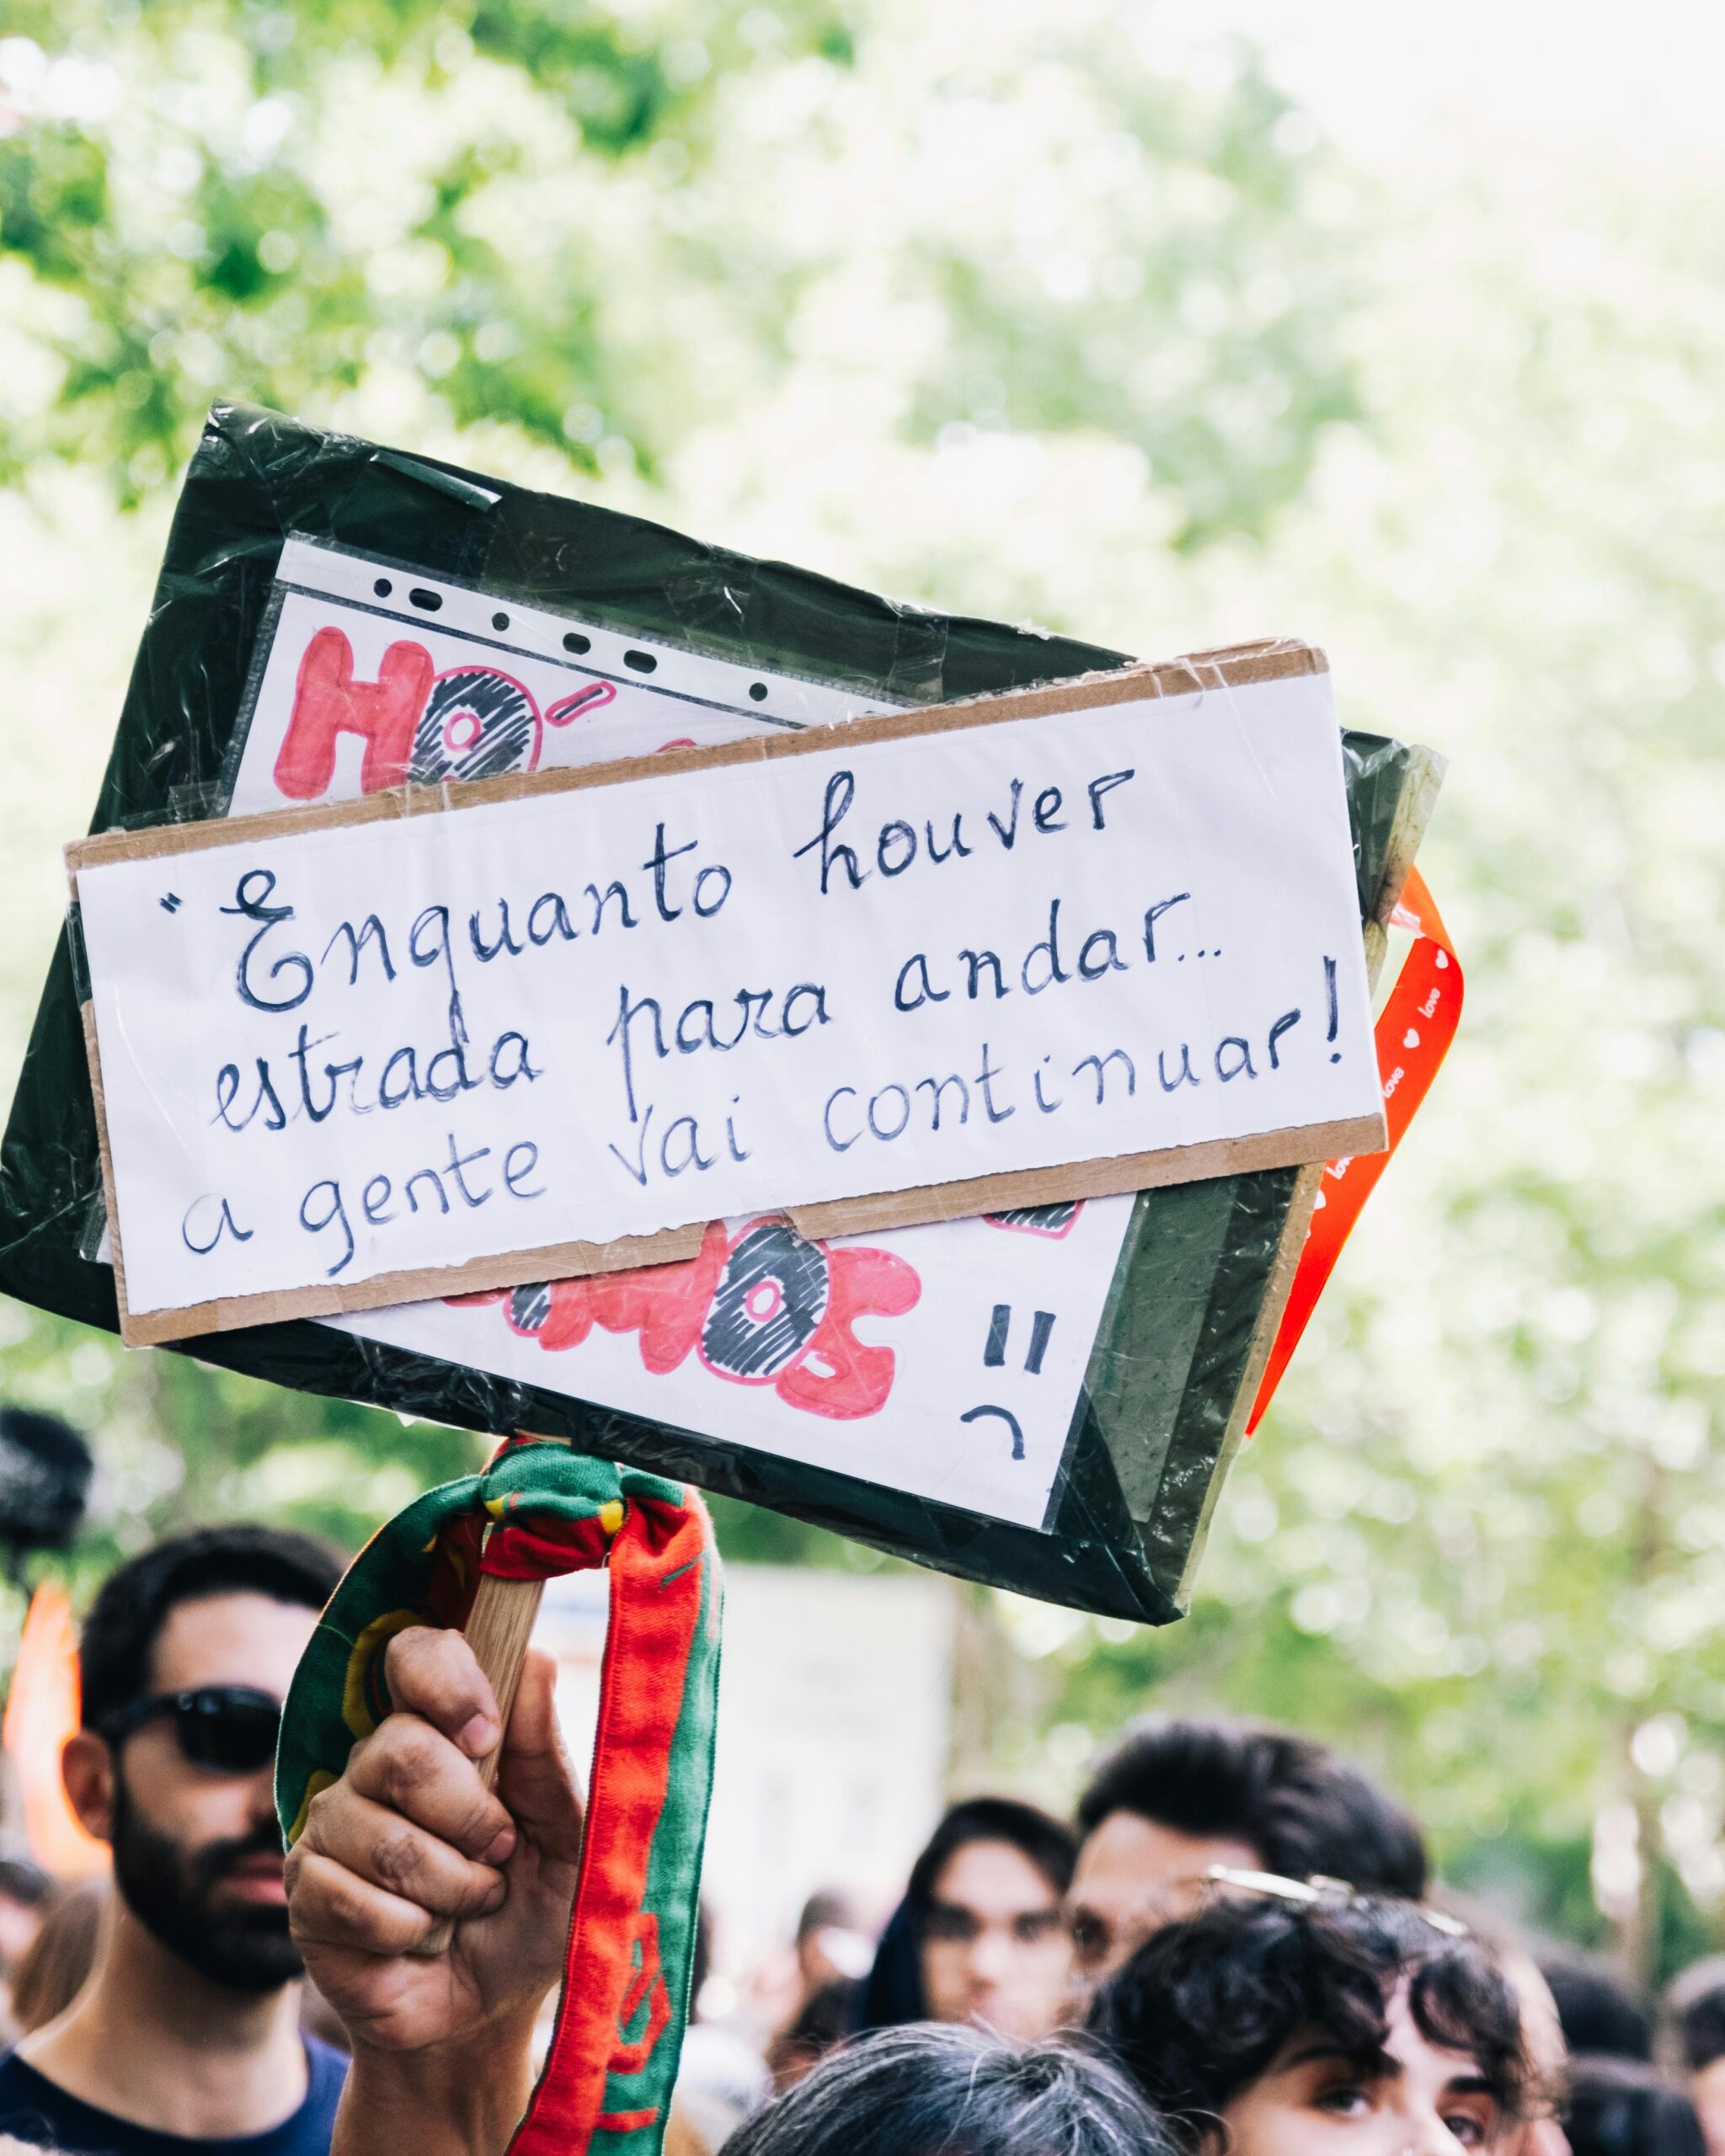 HO´
"Enquanto houver
estrada para andar...
a gente vai continuar!
MOS
love
love
love